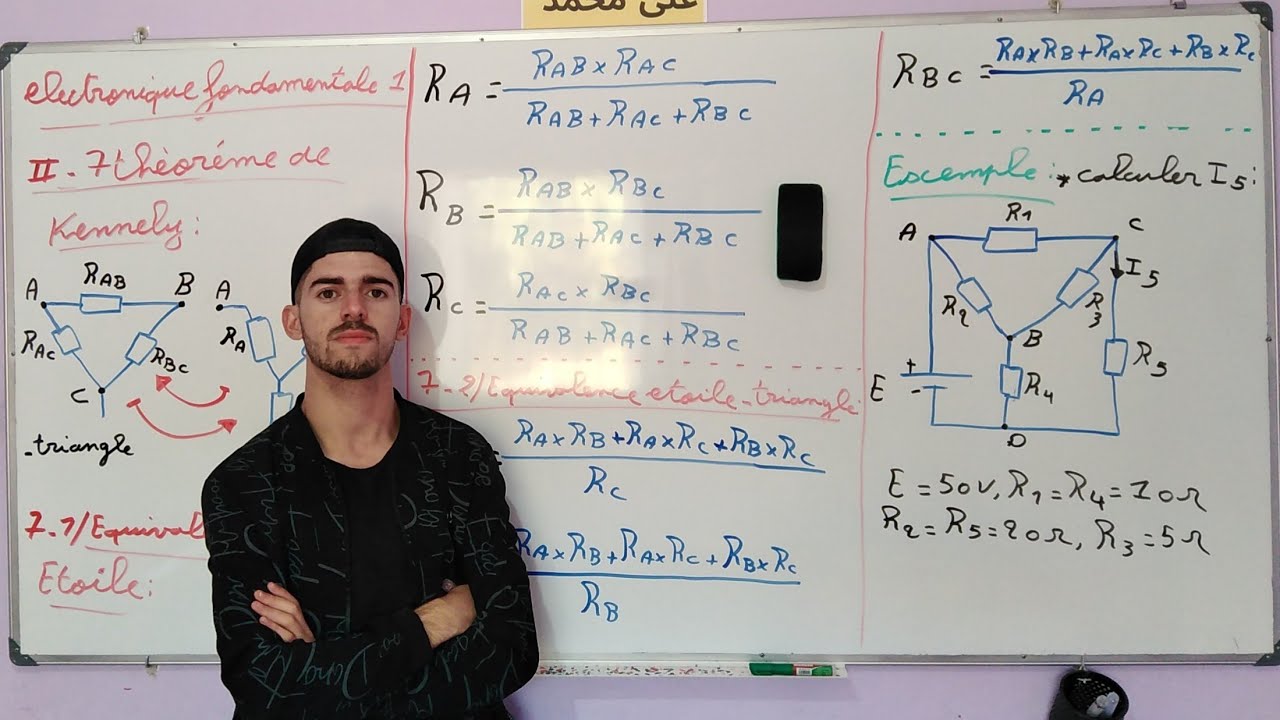 على محمد
electronique fondamentale 1
II - 7 théoréme de
Kennely :
A
RAB
B
RAC
RBC
C
- triangle
A
RA
7-1/Equival
Etoile :
RA = RAB x RAC
RAB + RAC + RBC
RB = RAB x RBC
RAB + RAC + RBC
RC = RAC x RBC
RAB + RAC + RBC
7-2/Equivalence etoile-triangle:
= RA x RB + RA x RC + RB x RC
RC
RA x RB + RA x RC + RB x RC
RB
RBC = RA x RB + RA x RC + RB x RC
RA
Escemple : * calculer I5 :
A
R1
C
I5
R2
R3
B
R5
+
E
-
R4
D
E = 50V, R1 = R4 = 10Ω
R2 = R5 = 20Ω, R3 = 5Ω